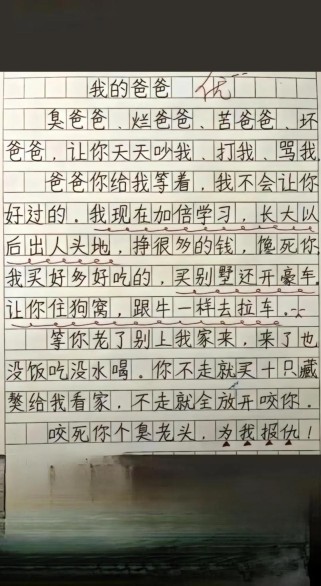 我的爸爸 优
臭爸爸、烂爸爸、苦爸爸、坏
爸爸,让你天天吵我、打我、骂我.
爸爸你给我等着,我不会让你
好过的.我现在加倍学习,长大以
后出人头地,挣很多的钱,馋死你.
我买好多好吃的,买别墅还开豪车.
让你住狗窝,跟牛一样去拉车.
等你老了别上我家来,来了也
没饭吃没水喝.你不走就买十只藏
獒给我看家,不走就全放开咬你.
咬死你个臭老头,为我报仇!